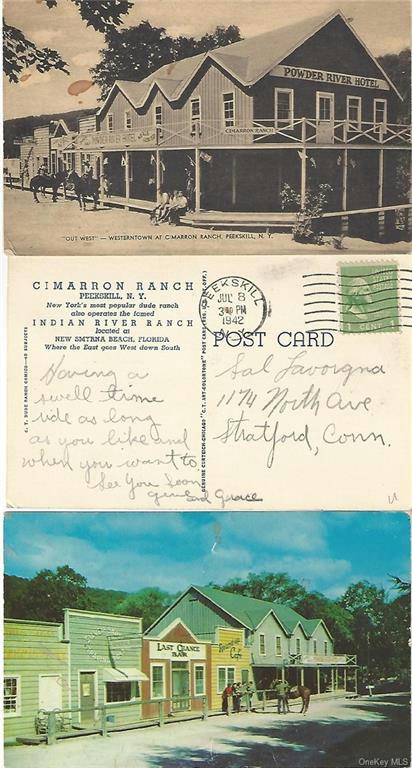 POWDER RIVER HOTEL
CIMARRON RANCH
"OUT WEST" — WESTERNTOWN AT CIMARRON RANCH, PEEKSKILL, N. Y.
CIMARRON RANCH
PEEKSKILL, N. Y.
New York's most popular dude ranch
also operates the famed
INDIAN RIVER RANCH
located at
NEW SMYRNA BEACH, FLORIDA
Where the East goes West down South
C. T. DUDE RANCH COMICS—40 SUBJECTS
GENUINE CURTEICH-CHICAGO "C.T. ART-COLORTONE" POST CARD
PEEKSKILL
JUL 8
3 PM
1942
N.Y.
1 CENT
POST CARD
Having a
swell time
ride as long
as you like and
when you want to.
See You Soon
and Grace
Sal
1174 North Ave
Stratford, Conn.
LAST CHANCE
BAR
Cafe
OneKey MLS